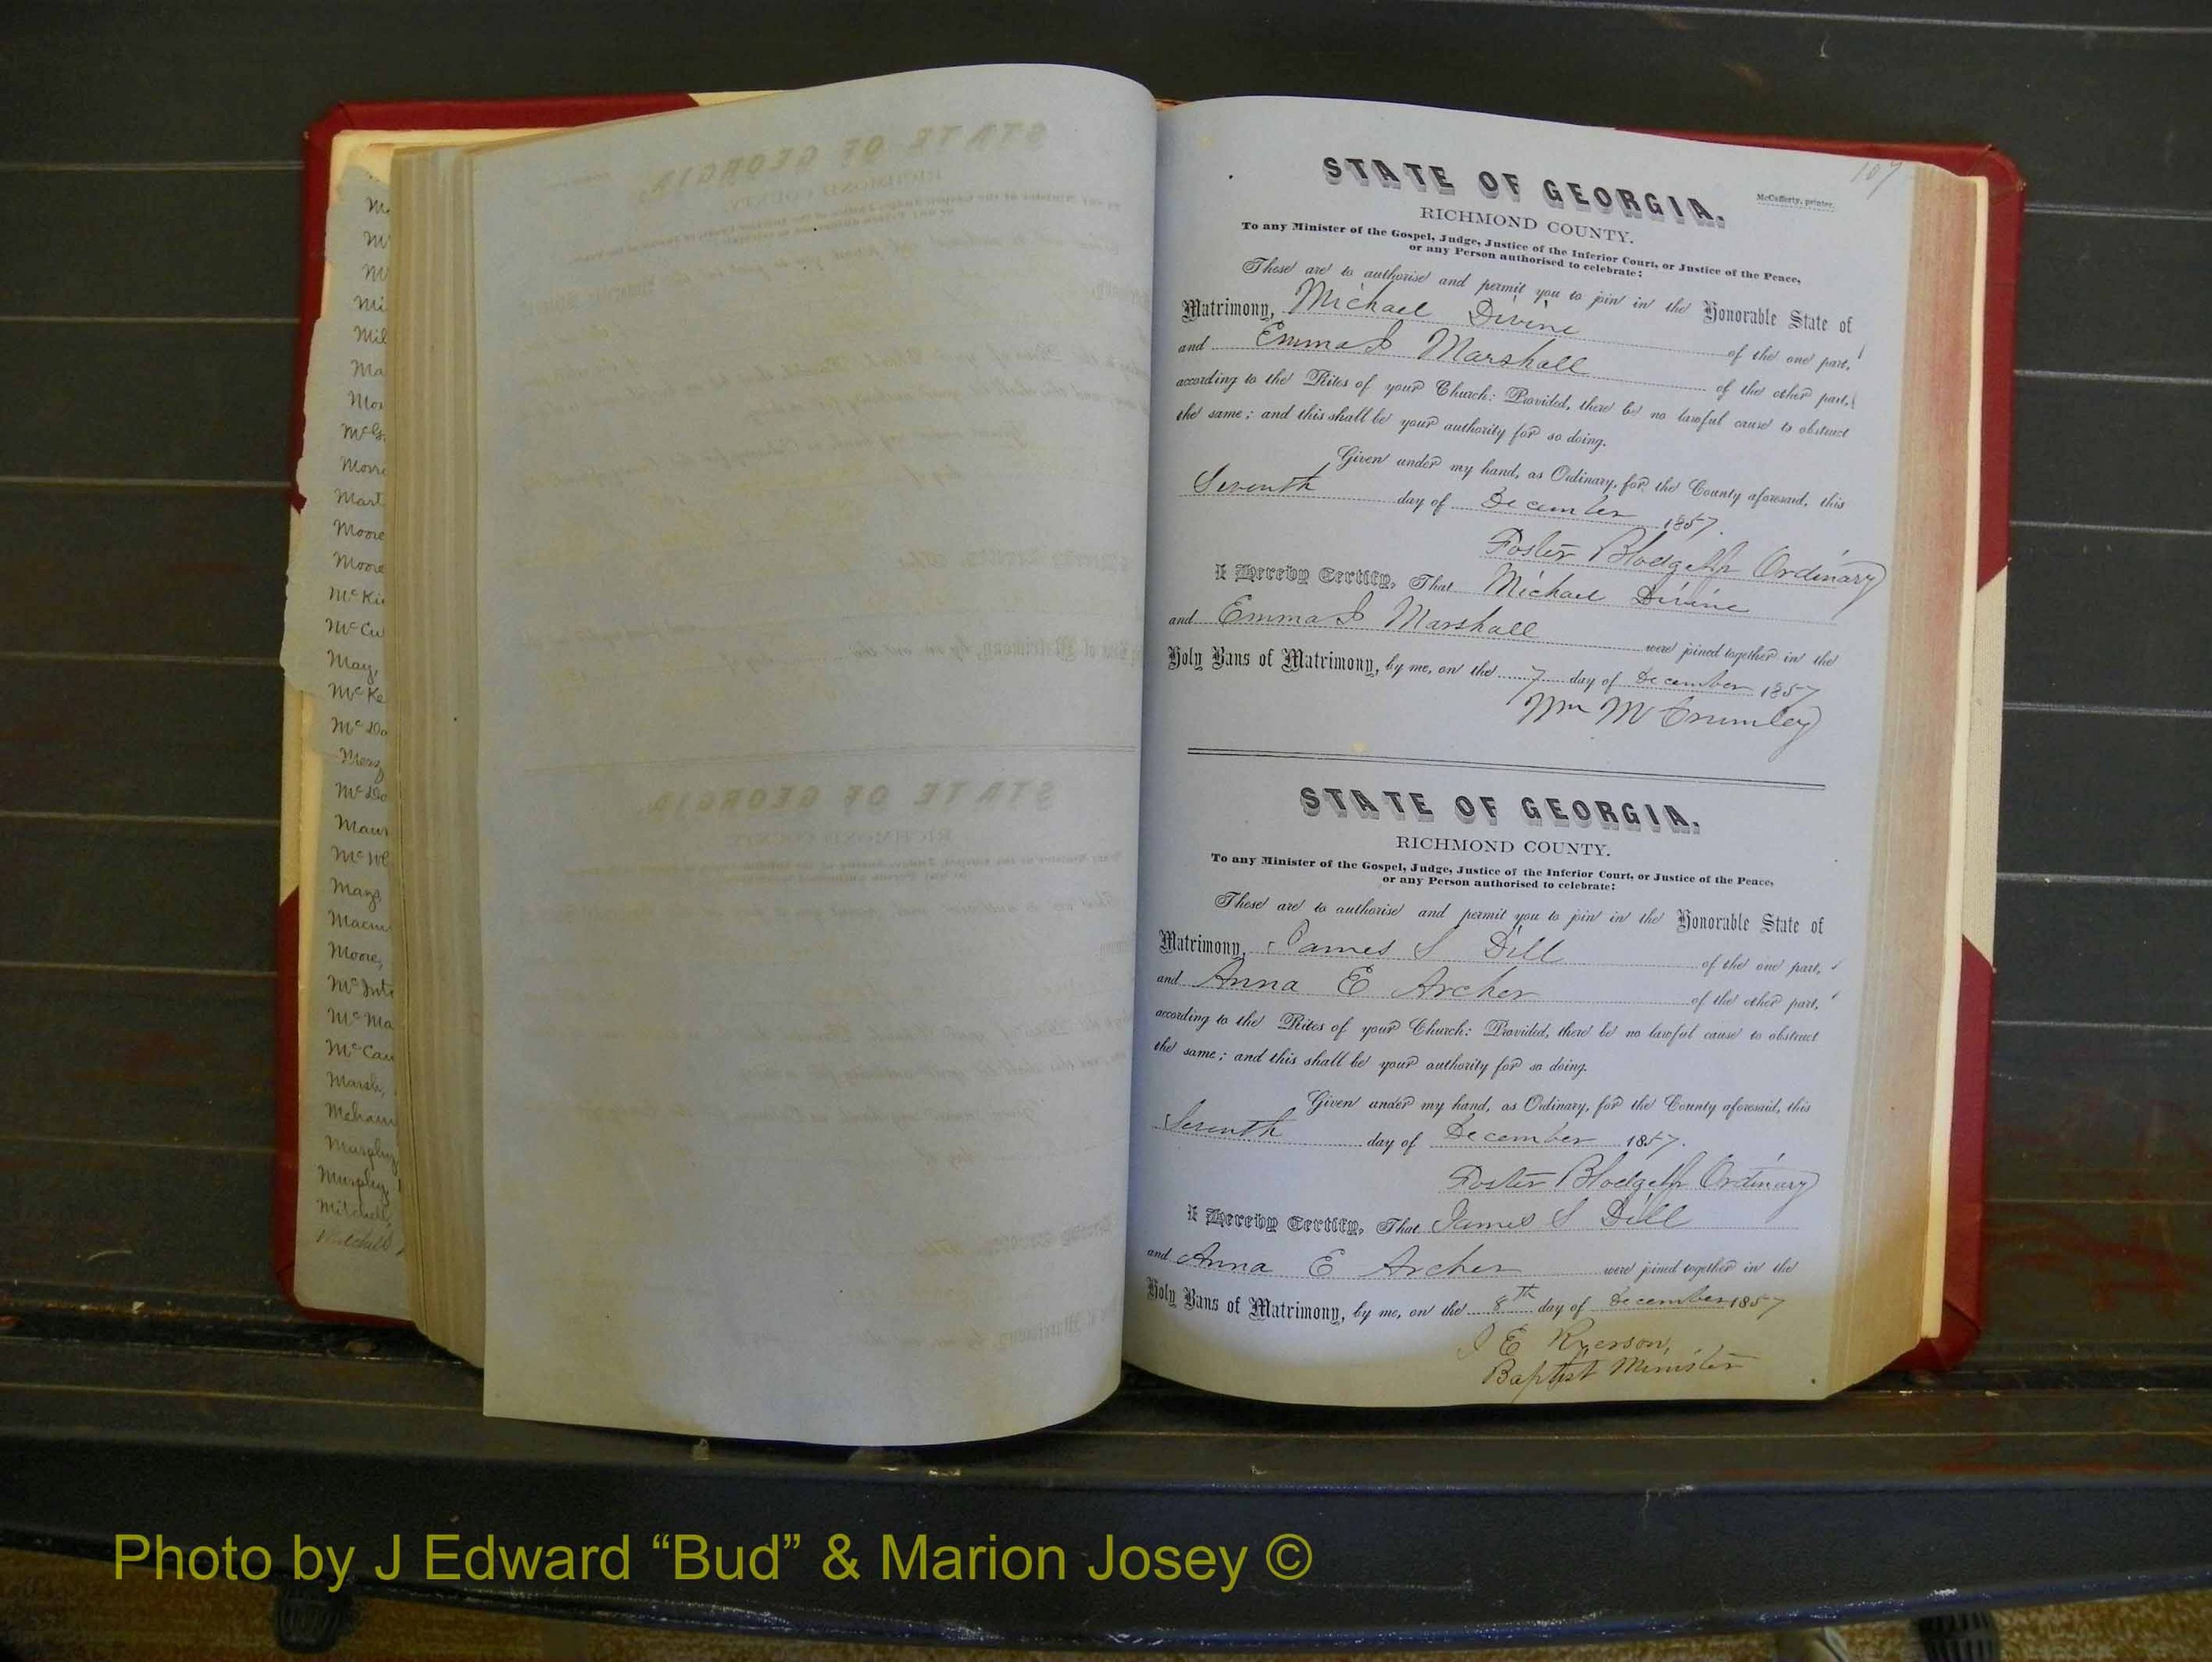 M
M
M
Mi
Mil
Ma
Mor
McG
Morri
Mart
Moore
Moore
McKi
McCu
May,
McKe
McDo
Merz
McDo
Maur
McWe
Mays
Macm
Moore,
McInt
McMa
McCau
Marsh,
Meham
Murphy
Murphy
Mitchell,
Mitchell
107
STATE OF GEORGIA.
McCafferty, printer.
RICHMOND COUNTY.
To any Minister of the Gospel, Judge, Justice of the Inferior Court, or Justice of the Peace,
or any Person authorised to celebrate:
These are to authorise and permit you to join in the Honorable State of
Matrimony, Michael Divine of the one part,
and Emma J Marshall of the other part,
according to the Rites of your Church: Provided, there be no lawful cause to obstruct
the same; and this shall be your authority for so doing.
Given under my hand, as Ordinary, for the County aforesaid, this
Seventh day of December 1857.
Foster Blodget Jr Ordinary
I Hereby Certify, That Michael Divine
and Emma J Marshall were joined together in the
Holy Bans of Matrimony, by me, on the 7 day of December 1857
Wm M Crumley
STATE OF GEORGIA.
RICHMOND COUNTY.
To any Minister of the Gospel, Judge, Justice of the Inferior Court, or Justice of the Peace,
or any Person authorised to celebrate:
These are to authorise and permit you to join in the Honorable State of
Matrimony, James S Dill of the one part,
and Anna E Archer of the other part,
according to the Rites of your Church: Provided, there be no lawful cause to obstruct
the same; and this shall be your authority for so doing.
Given under my hand, as Ordinary, for the County aforesaid, this
Seventh day of December 1857.
Foster Blodget Jr Ordinary
I Hereby Certify, That James S Dill
and Anna E Archer were joined together in the
Holy Bans of Matrimony, by me, on the 8th day of December 1857
J E Ryerson,
Baptist Minister
Photo by J Edward “Bud” & Marion Josey ©